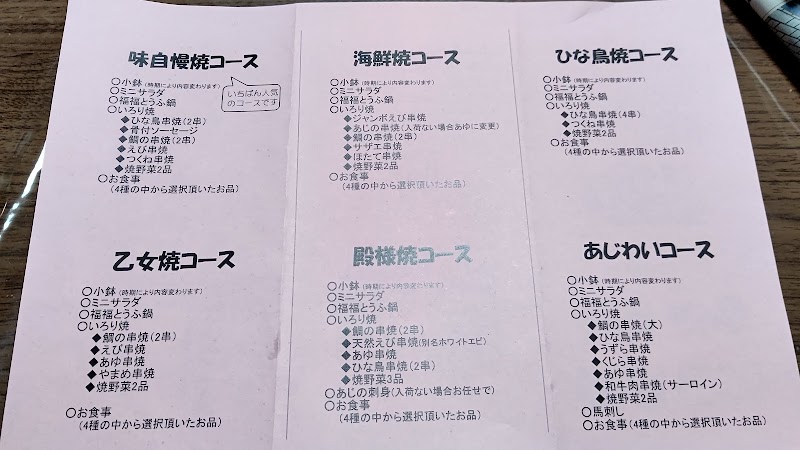 味自慢焼コース
○小鉢(時期により内容変わります)
○ミニサラダ
○福福とうふ鍋
○いろり焼
◆ひな鳥串焼(2串)
◆骨付ソーセージ
◆鯛の串焼(2串)
◆えび串焼
◆つくね串焼
◆焼野菜2品
○お食事
(4種の中から選択頂いたお品)
いちばん人気
のコースです
海鮮焼コース
○小鉢(時期により内容変わります)
○ミニサラダ
○福福とうふ鍋
○いろり焼
◆ジャンボえび串焼
◆あじの串焼(入荷ない場合あゆに変更)
◆鯛の串焼(2串)
◆サザエ串焼
◆ほたて串焼
◆焼野菜2品
○お食事
(4種の中から選択頂いたお品)
ひな鳥焼コース
○小鉢(時期により内容変わります)
○ミニサラダ
○福福とうふ鍋
○いろり焼
◆ひな鳥串焼(4串)
◆つくね串焼
◆焼野菜2品
○お食事
(4種の中から選択頂いたお品)
乙女焼コース
○小鉢(時期により内容変わります)
○ミニサラダ
○福福とうふ鍋
○いろり焼
◆鯛の串焼(2串)
◆えび串焼
◆あゆ串焼
◆やまめ串焼
◆焼野菜2品
○お食事
(4種の中から選択頂いたお品)
殿様焼コース
○小鉢(時期により内容変わります)
○ミニサラダ
○福福とうふ鍋
○いろり焼
◆鯛の串焼(2串)
◆天然えび串焼(別名ホワイトエビ)
◆あゆ串焼
◆ひな鳥串焼(2串)
◆焼野菜3品
○あじの刺身(入荷ない場合お任せで)
○お食事
(4種の中から選択頂いたお品)
あじわいコース
○小鉢(時期により内容変わります)
○ミニサラダ
○福福とうふ鍋
○いろり焼
◆鯛の串焼(大)
◆ひな鳥串焼
◆うずら串焼
◆くじら串焼
◆あゆ串焼
◆和牛肉串焼(サーロイン)
◆焼野菜2品
○馬刺し
○お食事(4種の中から選択頂いたお品)